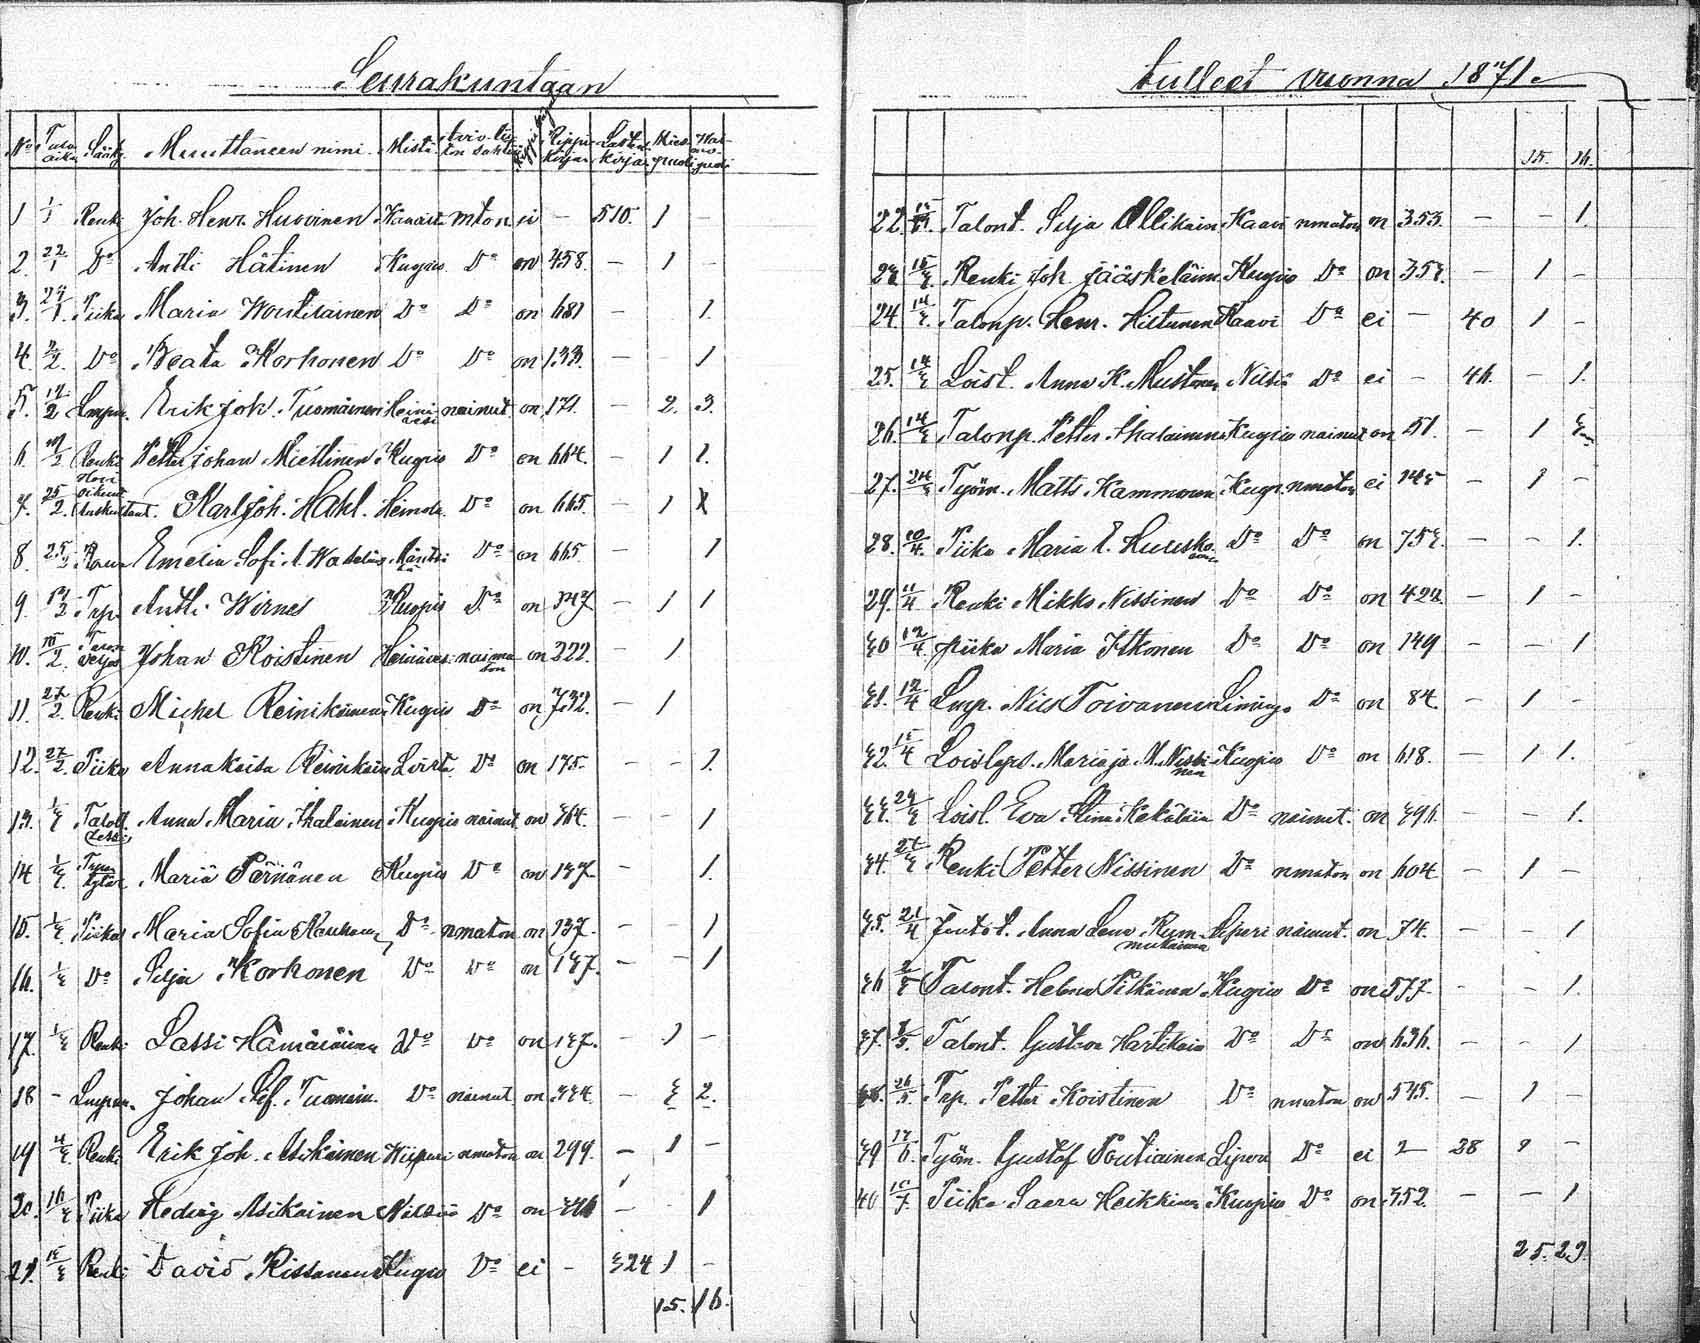 Seurakuntaan
No Tulo aika Sääty Muuttaneen nimi Mistä Rippi kirjan Lasten kirjan Mies puoli
1 1/1 Renki Joh. Henr. Huovinen mton ei — 510. 1 —
2. 22/1 Do Antti Hätinen Kuopio Do on 458. — 1 —
3. 27/1 Piika Maria Do Do on 681 — 1.
4. 2/2. Do Beata Korhonen Do Do on 133. — 1
5. 2 Lmpm. Erik Joh. Tuomainen Heinävesi nainut on 171. — 2. 3.
6. 2 Renki Petter Johan Miettinen Kuopio Do on 664. — 1 1.
7. 25/2. Karl Joh. Hahl. Heinola Do on 665. — 1
8. 25/2 Emelia Sofi A. Do on 665. — 1
9. 2 Trp. Antti Wirnes Kuopio Do on 347 — 1 1
10. 2. Johan Koistinen Heinävesi naimaton on 222. — 1
11. 27/2. Renki Michel Reinikainen Kuopio Do on 732. — 1
12. 27/2. Piika Anna Kaisa Reinikain Do on 175. — — 1.
13. Anna Maria Ihalainen Kuopio nainut on 364. — — 1
14 Maria Pärnänen Kuopio Do on 137 — 1.
15. Piika Maria Sofia Do nmaton on 137. — — 1
16. Do Silja Korhonen Do Do on 137. — — 1
17. Renki Lassi Hämäläinen Do Do on 137. — 1 —
18 — Lmpm. Johan Tuomain. Do nainut on 334. — 3 2.
19 Renki Erik Joh. Asikainen Wiipuri nmaton on 299. — 1 —
20. 16/3 Piika Hedvig Asikainen Nilsiä Do on — — 1
21. Renki David Rissanen Kuopio Do ei — 324 1 —
15. 16.
tulleet vuonna 1871.
15. 16.
22. Talont. Silja Ollikain Kaavi nmaton on 353. — — 1.
23 Renki Joh. Jääskeläin Kuopio Do on 353. — 1 —
24. 14/3. Talonp. Henr. Hiltunen Kaavi Do ei — 40 1 —
25. 14/3 Loist. Anna K. Mustonen Nilsiä Do ei — 46. — 1.
26. 14/3 Talonp. Petter Ihalainen Kuopio nainut on 51. — 1 3
27. 24/3 Työm. Matts Kammonen Kuop. nmaton ei 145 — 1 —
28. 10/4. Piika Maria E. Do Do on 753. — — 1.
29. 11/4 Renki Mikko Nissinen Do Do on 422 — 1 —
30 12/4. piika Maria Itkonen Do Do on 149 — — 1
31. 12/4 Lmp. Nils Toivanen Liminga Do on 84. — 1 —
32. 15/4 Maria ja M. Nissinen Kuopio Do on 618. — 1 1.
33. 24/3 Loisl. Eva Stina Kekäläin Do nainut. on 396. — — 1.
34. 27/3 Renki Petter Nissinen Do nmaton on 604 — 1 —
35. 21/4 Anna Lena Rummukainen Liperi nainut. on 74. — — 1
36 2/5 Talont. Helena Pitkänen Kuopio Do on 577. — — 1.
37. Talont. Gustava Hartikain Do Do on 636. — — 1
38. 26/5. Trp. Petter Koistinen Do nmaton on 545. — 1 —
39 17/6. Työm. Gustaf Poutiainen Liperi Do ei 2 — 28 —
40 10/7. Piika Saara Heikkinen Kuopio Do on 352. — — 1
25. 29.